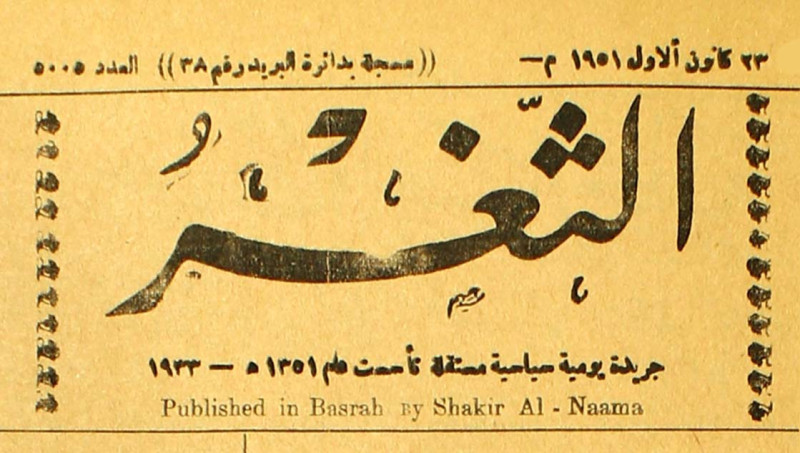 ٢٣ كانون الاول ١٩٥١ م— ((مسجلة بدائرة البريد رقم ٣٨)) العدد ٥٠٠٥
الثَّغْرُ
جريدة يومية سياسية مستقلة تأسست عام ١٣٥١ ه — ١٩٣٣
Published in Basrah By Shakir Al - Naama